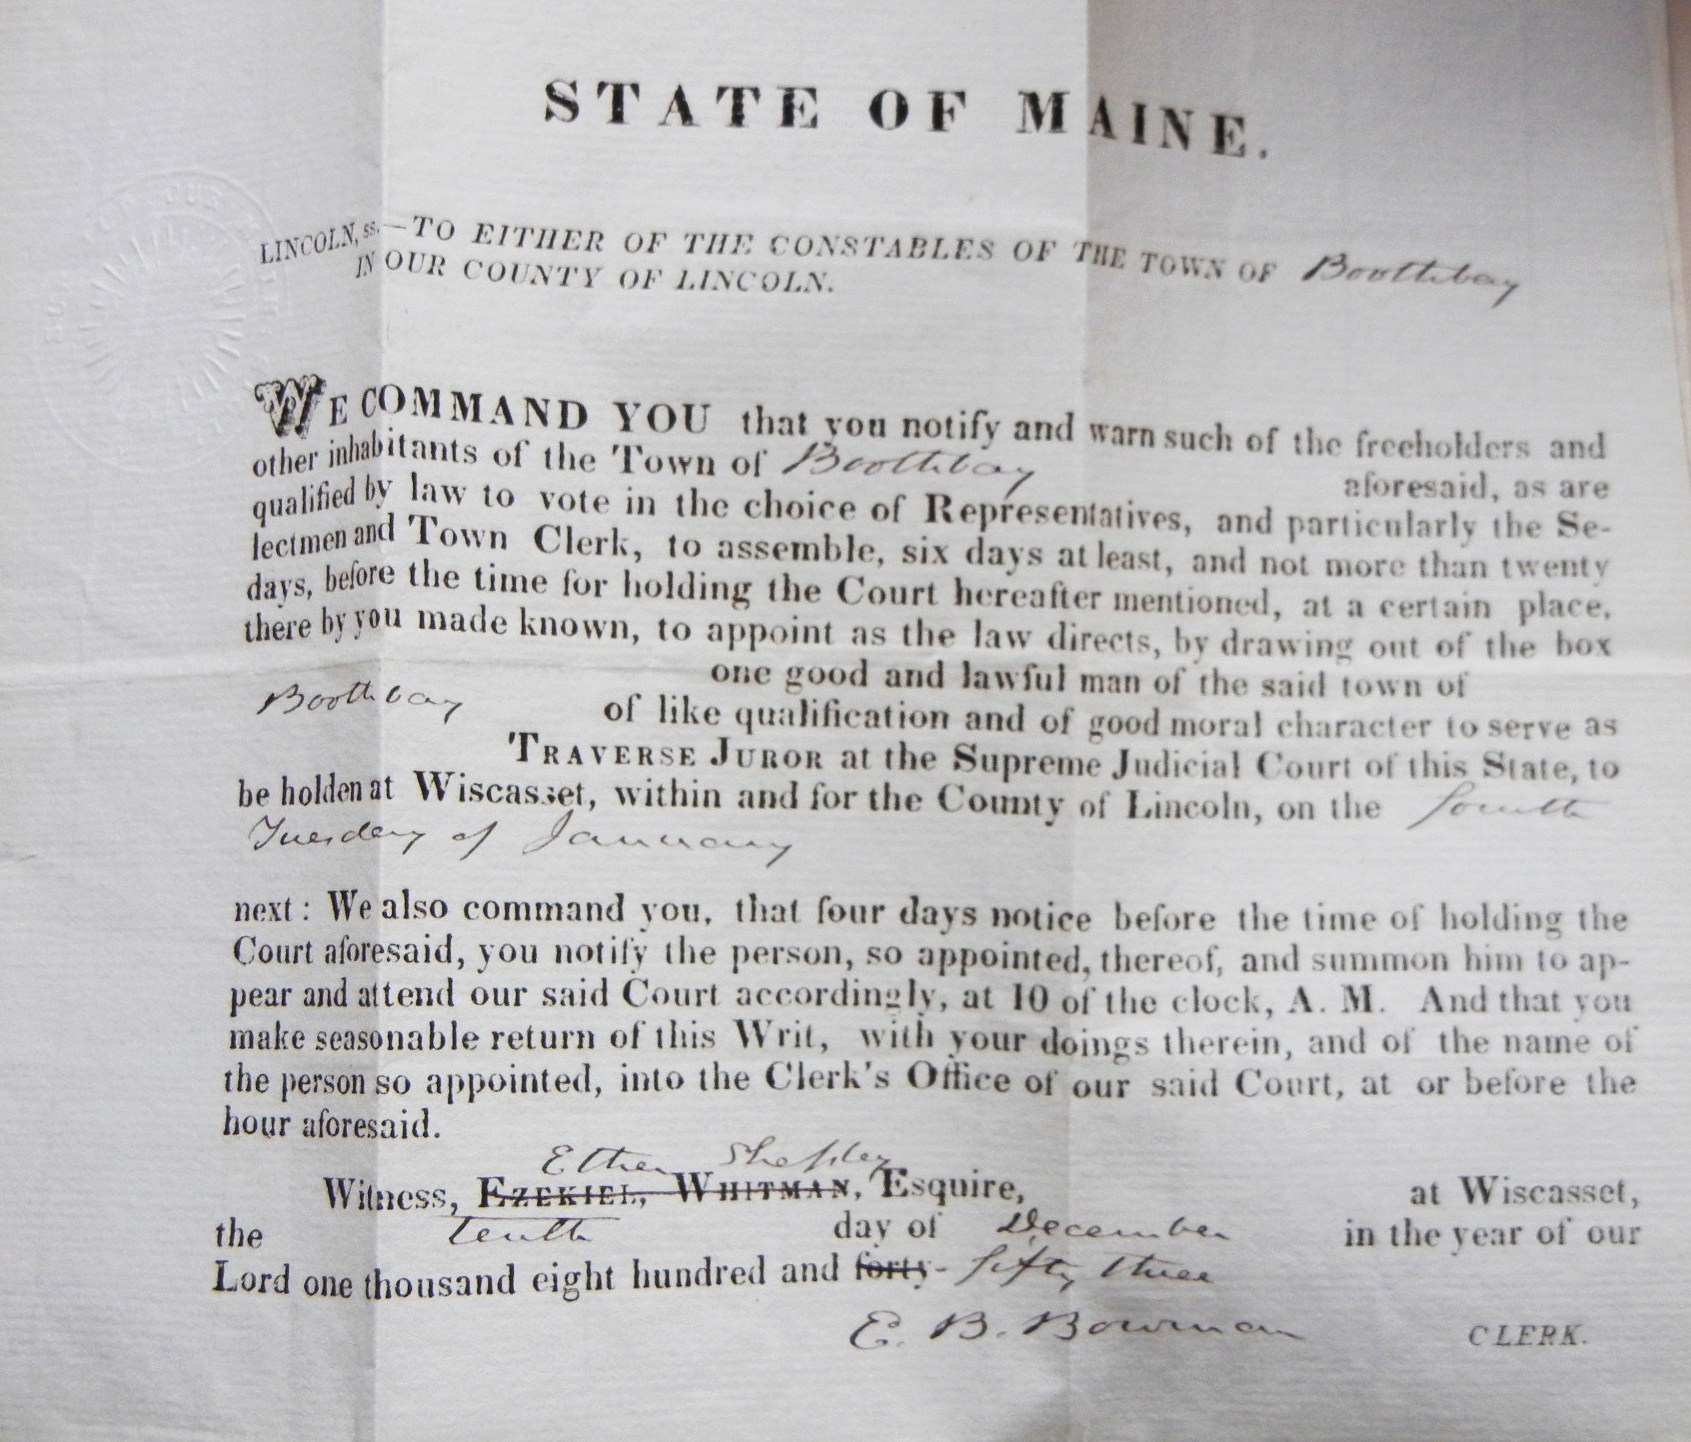 STATE OF MAINE.
LINCOLN, ss.—TO EITHER OF THE CONSTABLES OF THE TOWN OF Boothbay
IN OUR COUNTY OF LINCOLN.
WE COMMAND YOU that you notify and warn such of the freeholders and
other inhabitants of the Town of Boothbay aforesaid, as are
qualified by law to vote in the choice of Representatives, and particularly the Se-
lectmen and Town Clerk, to assemble, six days at least, and not more than twenty
days, before the time for holding the Court hereafter mentioned, at a certain place,
there by you made known, to appoint as the law directs, by drawing out of the box
one good and lawful man of the said town of
Boothbay of like qualification and of good moral character to serve as
TRAVERSE JUROR at the Supreme Judicial Court of this State, to
be holden at Wiscasset, within and for the County of Lincoln, on the fourth
Tuesday of January
next: We also command you, that four days notice before the time of holding the
Court aforesaid, you notify the person, so appointed, thereof, and summon him to ap-
pear and attend our said Court accordingly, at 10 of the clock, A. M. And that you
make seasonable return of this Writ, with your doings therein, and of the name of
the person so appointed, into the Clerk's Office of our said Court, at or before the
hour aforesaid.
Ether Shepley
Witness, EZEKIEL, WHITMAN, Esquire, at Wiscasset,
the tenth day of December in the year of our
Lord one thousand eight hundred and forty- fifty three
E. B. Bowman CLERK.